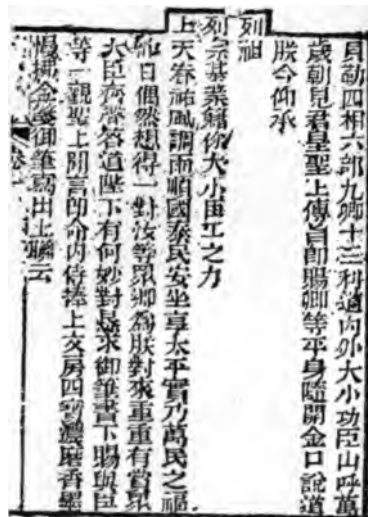 貝勒四相六部九卿十三科道內外大小功臣山呼萬
歲朝見君皇聖上傳旨卽賜卿等平身隨開金口說道
朕今仰承
列祖
列宗基業賴你大小臣工之力
上天眷祐風調雨順國泰民安坐享太平實乃萬民之福
今日偶然想得一對汝等衆卿爲朕對來重重有賞衆
大臣齊聲答道陛下有何妙對懇求御筆書下賜與臣
等一觀聖上開言卽命內侍捧上文房四寶濃磨香墨
慢拂金箋御筆寫出上聯云